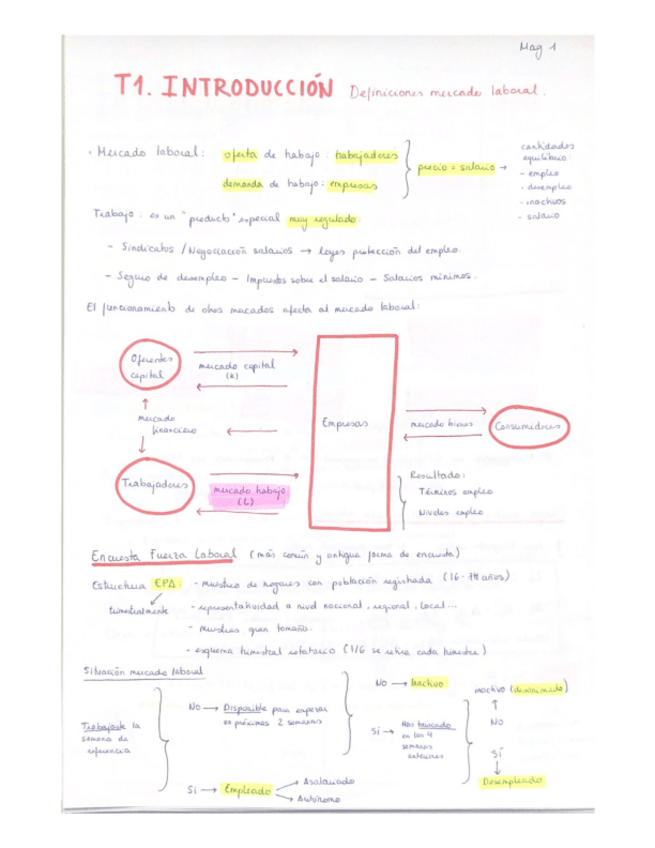 Mag 1
T1. INTRODUCCIÓN Definiciones mercado laboral.
· Mercado laboral: oferta de trabajo: trabajadores
demanda de trabajo: empresas
precio = salario →
cantidades
equilibrio:
- empleo
- desempleo
- inactivos
- salario
Trabajo: es un "producto" especial muy regulado:
- Sindicatos / Negociación salarios → leyes protección del empleo.
- Seguro de desempleo - Impuestos sobre el salario - Salarios mínimos.
El funcionamiento de otros mercados afecta al mercado laboral:
Oferentes
capital
mercado capital
(K)
mercado
financiero
Empresas
mercado bienes
Consumidores
Trabajadores
mercado trabajo
(L)
Resultado:
Términos empleo
Niveles empleo
Encuesta Fuerza Laboral (más común y antigua forma de encuesta)
Estructura EPA: - muestreo de hogares con población registrada (16 - años)
trimestralmente
- representatividad a nivel nacional, regional, local...
- muestras gran tamaño.
- esquema trimestral rotatorio (1/6 se retira cada trimestre)
Situación mercado laboral
Trabajaste la
semana de
referencia
No → Disponible para empezar
en próximas 2 semanas
No → Inactivo
Sí → Has buscado
en las 4
semanas
anteriores
inactivo (desanimado)
↑
NO
SÍ
↓
Desempleado
Sí → Empleado
→ Asalariado
→ Autónomo